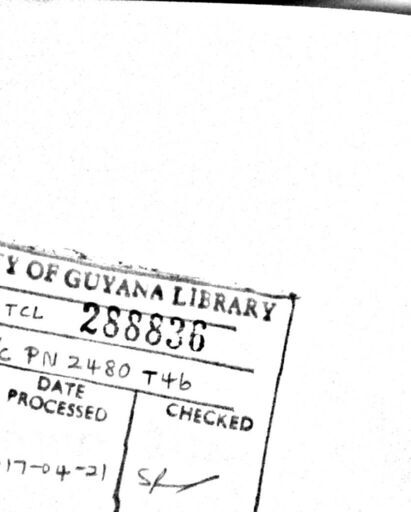 Y OF GUYANA LIBRARY
TCL 288836
C PN 2480 T46
DATE PROCESSED CHECKED
17-04-21